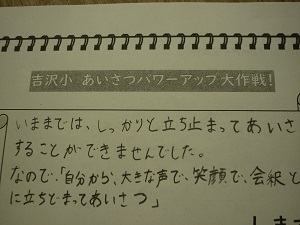 吉沢小 あいさつパワーアップ大作戦!
いままでは、しっかりと立ち止まってあいさ
することができませんでした。
なので、「自分から、大きな声で、笑顔で、会釈と
に立ちどまってあいさつ」